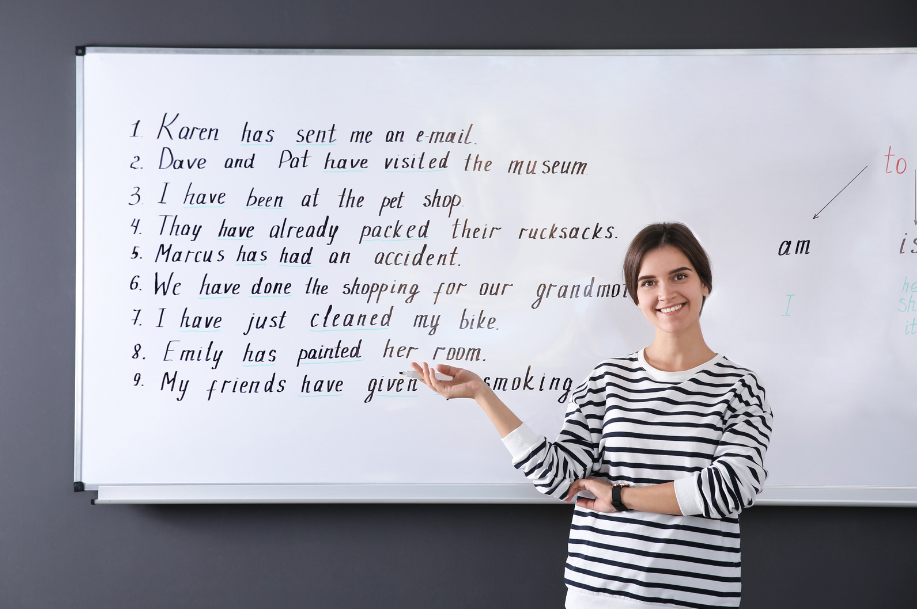 1. Karen has sent me an e-mail.
2. Dave and Pat have visited the museum
3. I have been at the pet shop
4. Thay have already packed their rucksacks.
5. Marcus has had an accident.
6. We have done the shopping for our grandmot
7. I have just cleaned my bike.
8. Emily has painted her room.
9. My friends have given smoking.
to
am is
I he
sh
it